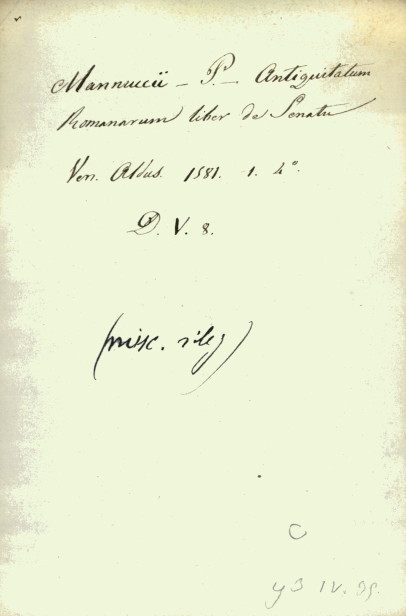 Mannuccii - P. - Antiquitatum
Romanarum liber de Senatu
Ven. Aldus. 1581. 1. 4°.
D. V. 8.
(misc. rileg)
C
93 IV. 35.